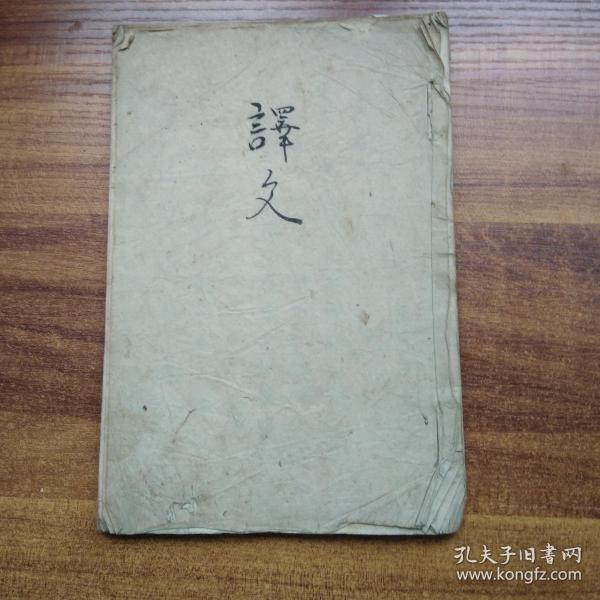 譯文
孔夫子旧書网
www.kongfz.com